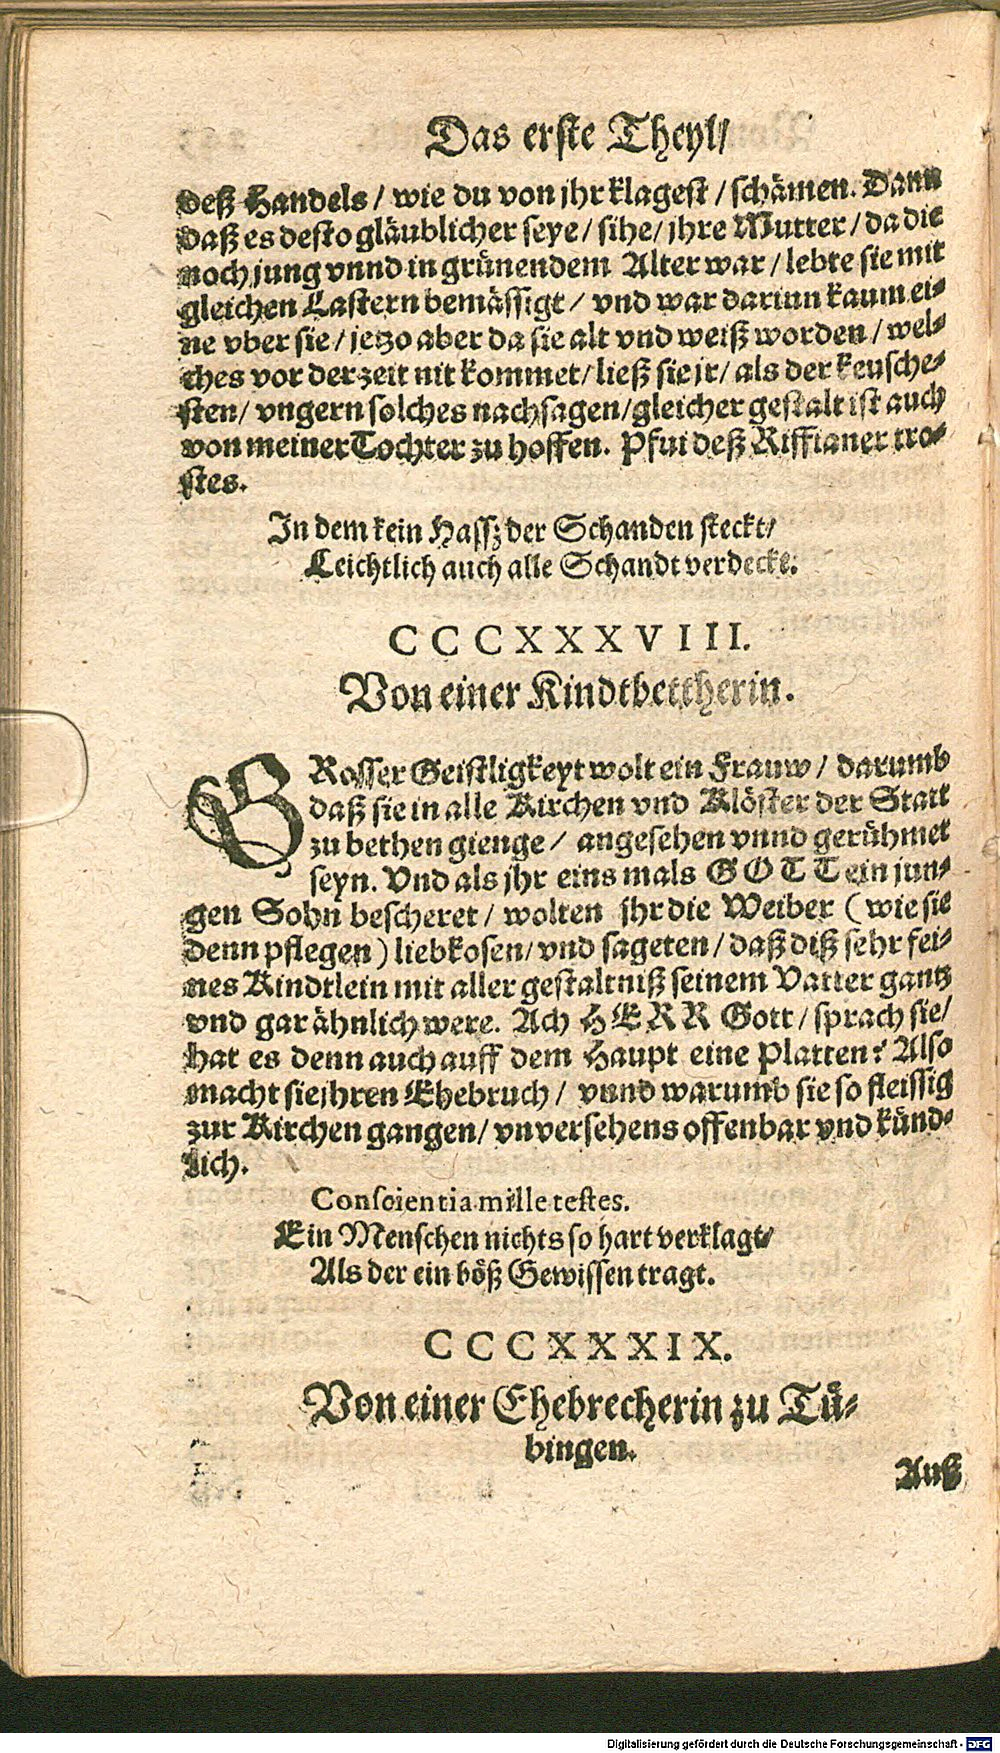 Das erste Theyl/
deß Handels / wie du von jhr klagest / schämen. Dann
daß es desto gläublicher seye / sihe / jhre Mutter / da die
noch jung vnnd in grünendem Alter war / lebte sie mit
gleichen Lastern bemässigt / vnd war darinn kaum ei-
ne vber sie / jetzo aber da sie alt vnd weiß worden / wel-
ches vor der zeit nit kommet / ließ sie jr / als der keusche-
sten / vngern solches nachsagen / gleicher gestalt ist auch
von meiner Tochter zu hoffen. Pfui deß Riffianer tro-
stes.
In dem kein Hassz der Schanden steckt/
Leichtlich auch alle Schandt verdeckt.
CCCXXXVIII.
Von einer Kindtbettherin.
GRosser Geistligkeyt wolt ein Frauw / darumb
daß sie in alle Kirchen vnd Klöster der Statt
zu bethen gienge / angesehen vnnd gerühmet
seyn. Vnd als jhr eins mals GOTT ein jun-
gen Sohn bescheret / wolten jhr die Weiber (wie sie
denn pflegen) liebkosen / vnd sageten / daß diß sehr fei-
nes Kindtlein mit aller gestaltniß seinem Vatter gantz
vnd gar ähnlich were. Ach HERR Gott / sprach sie/
hat es denn auch auff dem Haupt eine Platten? Also
macht sie jhren Ehebruch / vnnd warumb sie so fleissig
zur Kirchen gangen / vnversehens offenbar vnd künd-
lich.
Conscientia mille testes.
Ein Menschen nichts so hart verklagt/
Als der ein böß Gewissen tragt.
CCCXXXIX.
Von einer Ehebrecherin zu Tü-
bingen.
Auß
Digitalisierung gefördert durch die Deutsche Forschungsgemeinschaft - DFG